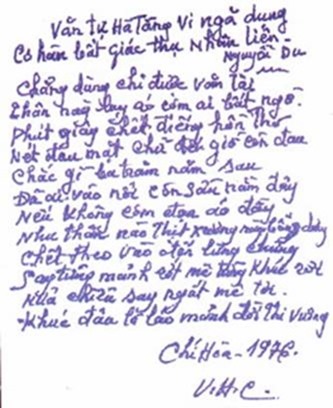 Văn tự Hà Tằng Vi ngã dung
Cơ hàn bất giác thụ Nhân liên
Nguyễn Du
Chẳng dùng chi được văn tài
Thân này lay áo cơm ai bất ngờ.
Phút giây chết điếng hồn thơ
Nét đau mặt chữ giờ còn đau
Chắc gì ba trăm năm sau
Đã ai vào nổi cơn sầu năm đây
Nếu không cơm áo đó đây
Như thân nào thịt xương này bỗng
Chết theo vào lưng chừng
Say từng mảnh cốt mê từng khúc rơi
Khi chiều say ngất mê tơi.
Khúc đâu lỗ lão mảnh đời Thi Vương
Chí Hòa - 1976.
V.H.C.